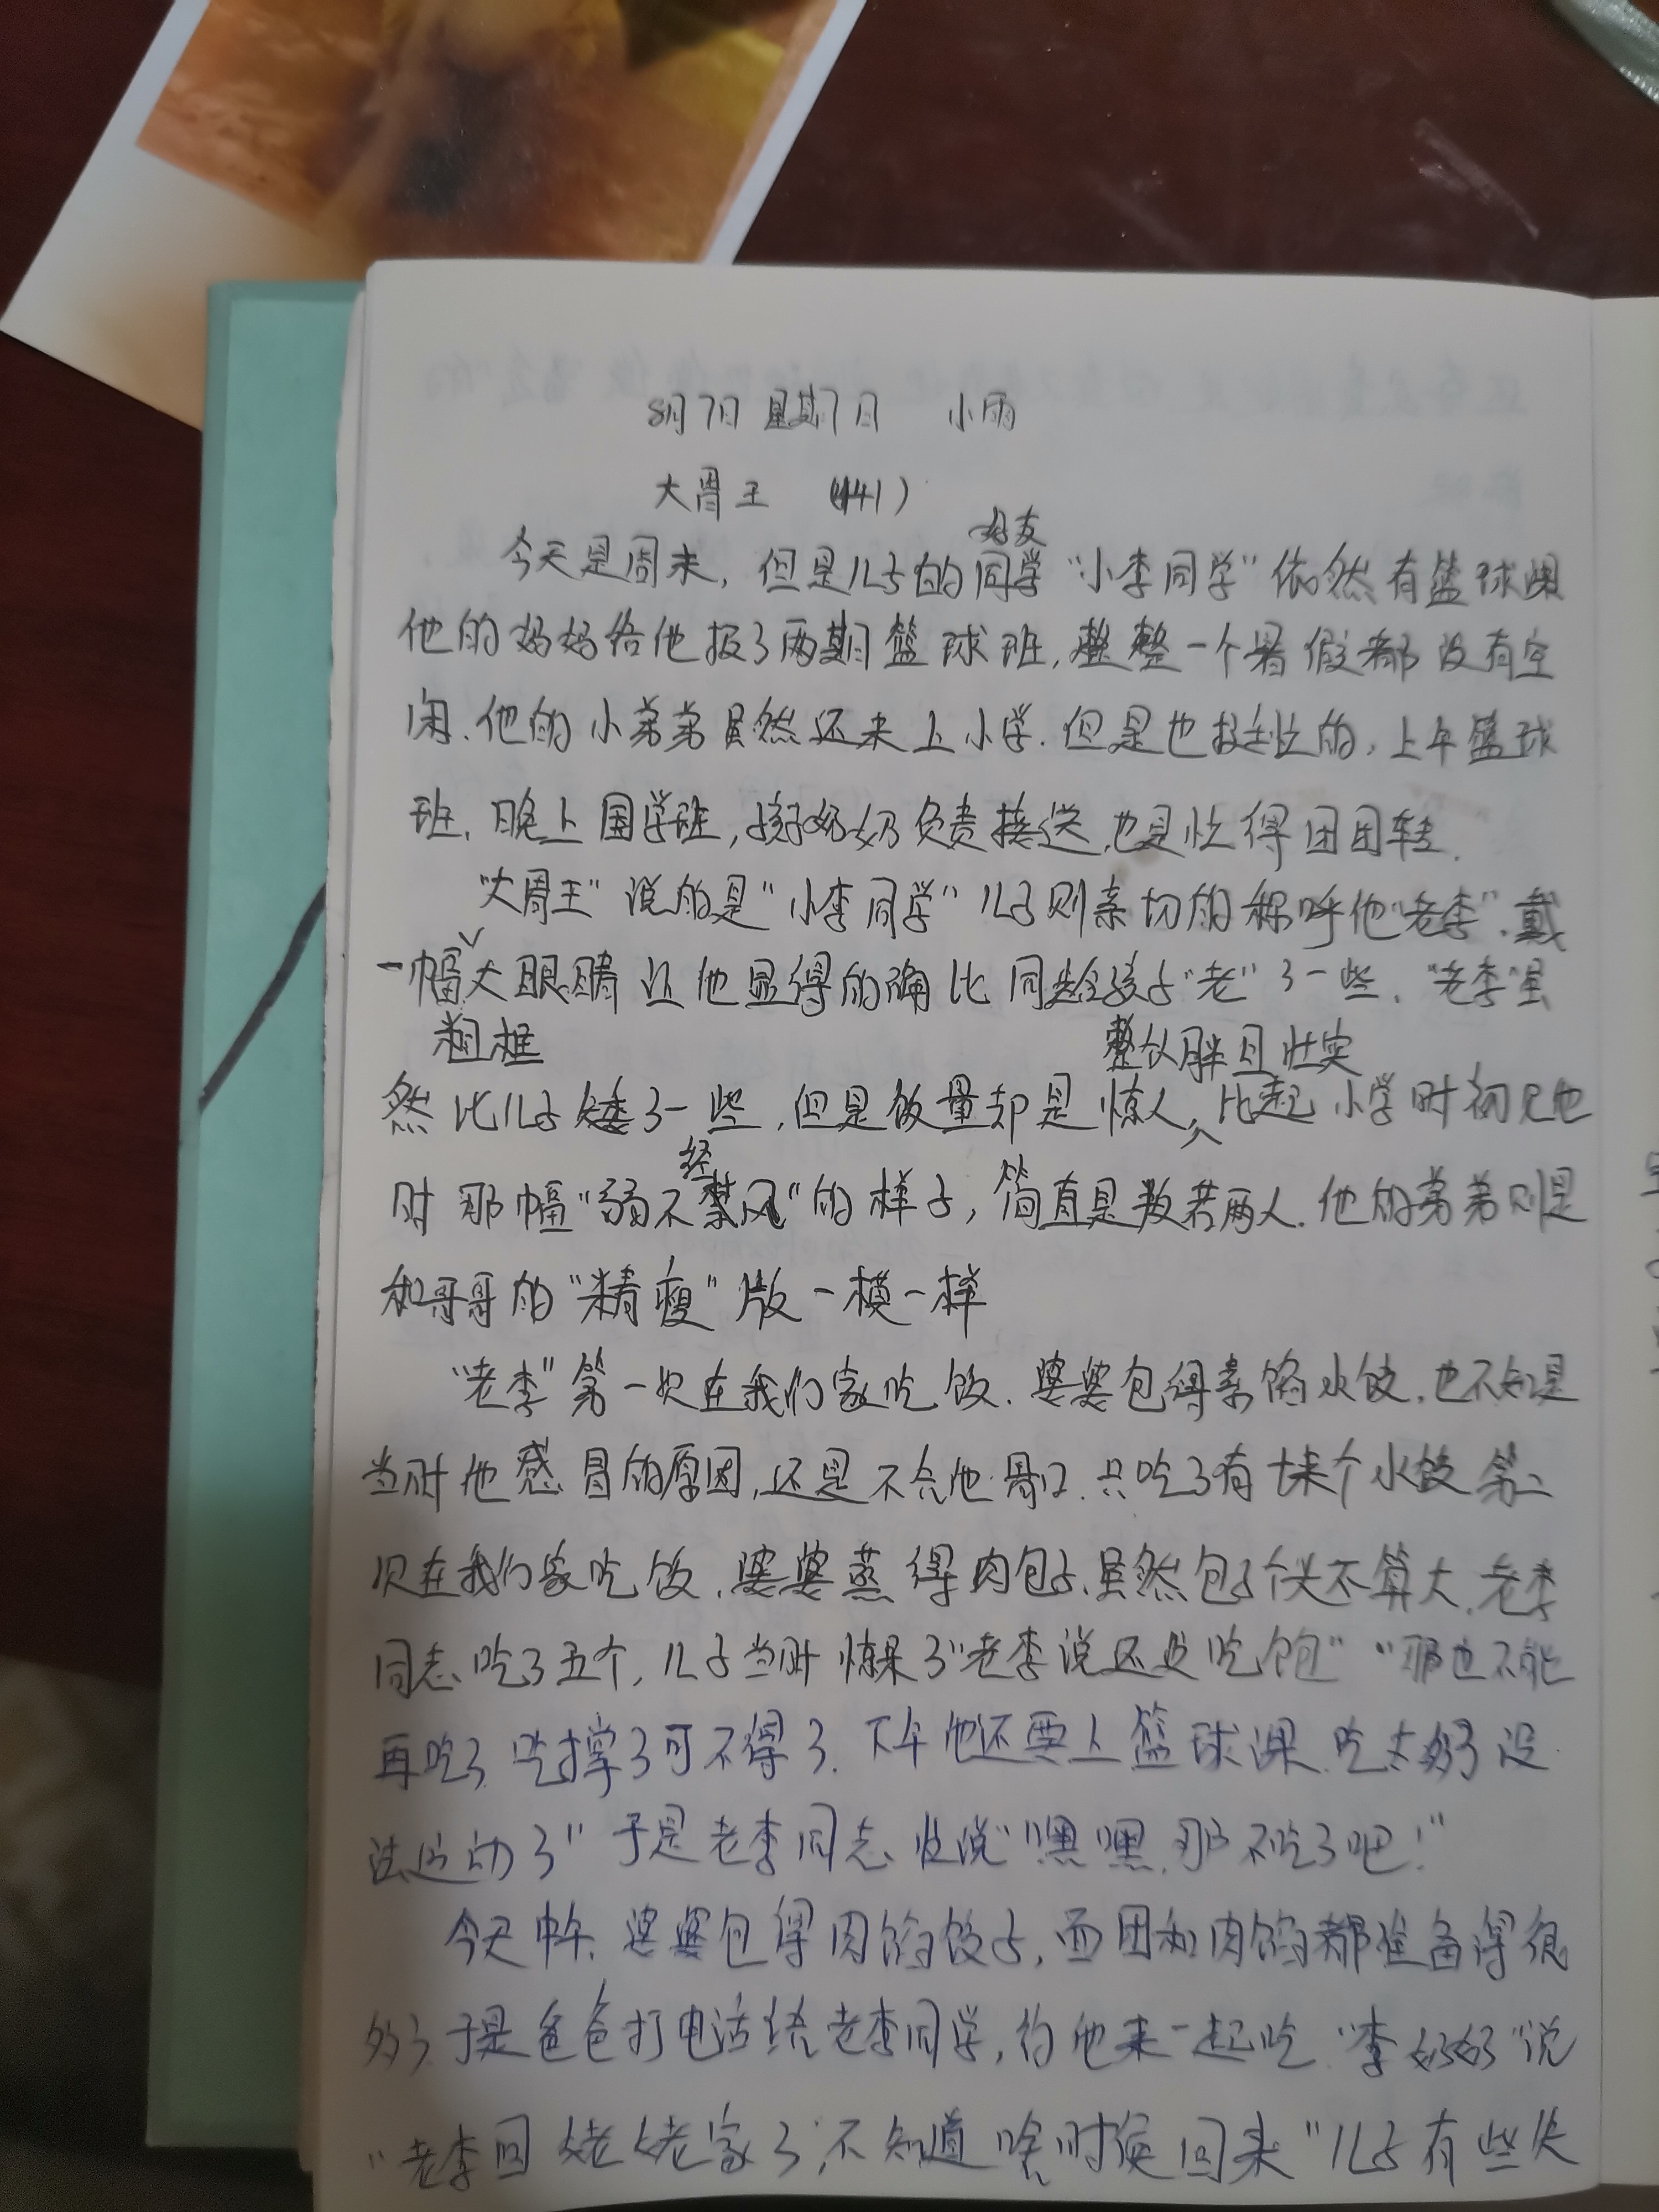 8月7日 星期日 小雨
大胃王 (141)
好友
今天是周末，但是儿子的同学“小李同学”依然有篮球课
他的妈妈给他报了两期篮球班，整整一个暑假都没有空
闲.他的小弟弟虽然还未上小学.但是也挺忙的，上午篮球
班，晚上国学班，奶奶负责接送，也是忙得团团转.
“大胃王”说的是“小李同学”儿子则亲切的称呼他“老李”.戴
一幅大眼睛让他显得的确比同龄孩子“老”了一些.“老李”虽
粗框
整个胖且壮实
然比儿子矮了一些，但是饭量却是惊人，比起小学时初见他
经
时那幅“弱不禁风”的样子，简直是叛若两人.他的弟弟则是
和哥哥的“精瘦”版一模一样
“老李”第一次在我们家吃饭.婆婆包得素馅水饺，也不知是
当时他感冒的原因，还是不合他胃口.只吃了有十来个水饺第二
次在我们家吃饭.婆婆蒸得肉包子.虽然包子个头不算大.老李
同志吃了五个，儿子当时惊呆了“老李说还没吃饱”“那也不能
再吃了.吃撑了可不得了.下午他还要上篮球课.吃太多了没
法运动了”于是老李同志也说“嘿嘿，那不吃了吧！”
今天中午.婆婆包得肉馅饺子，面团和肉馅都准备得很
多，于是爸爸打电话给老李同学，约他来一起吃.“李奶奶”说
“老李回姥姥家了，不知道啥时候回来”儿子有些失